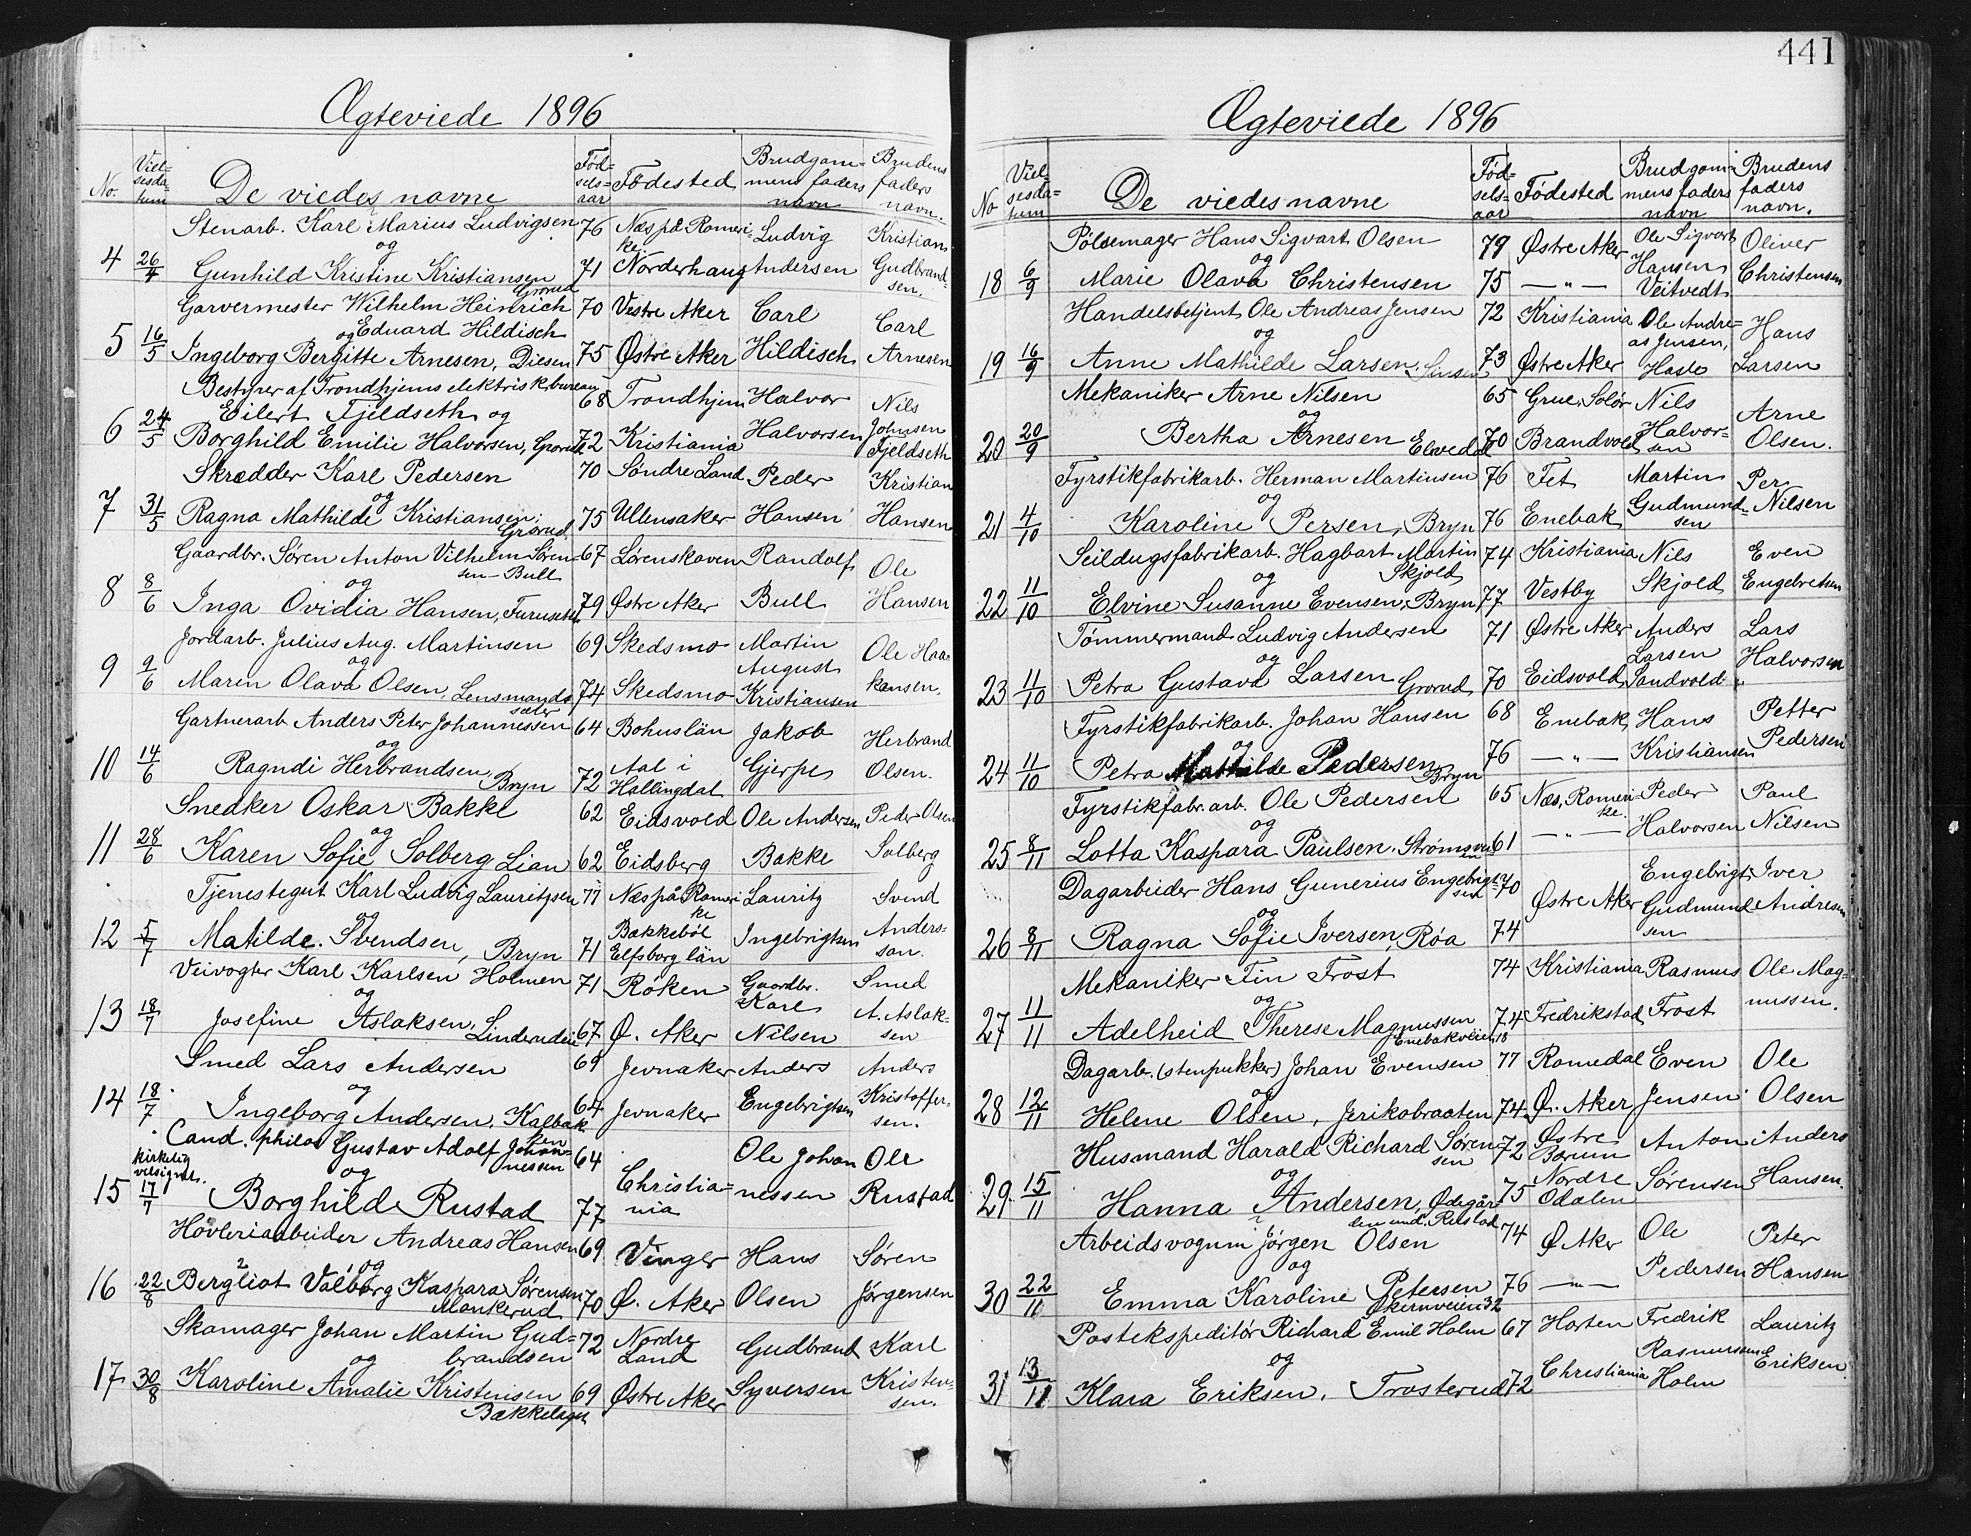 441
Ægteviede 1896
No. Vielsesdatum De viedes navne Fødselsaar Fødested Brudgommens faders navn Brudens faders navn.
Stenarb. Karl Marius Ludvigsen 76 Næs på Romerike Ludvig Kristian
4 26/4 og
Gunhild Kristine Kristiansen Grorud 71 Norderhaug Andersen Gudbrandsen.
Garvermester Wilhelm Heinrich Eduard Hildisch 70 Vestre Aker Carl Carl
5 16/5 og
Ingeborg Bergitte Arnesen, Diesen 75 Østre Aker Hildisch Arnesen
Bestyrer af Trondhjems elektrisk bureau
Eilert Fjeldseth og 68 Trondhjem Halvor Nils Johnsen
6 24/5 Borghild Emilie Halvorsen, Grorud 72 Kristiania Halvorsen Fjeldseth
Skrædder Karl Pedersen 70 Søndre Land Peder Kristian
7 31/5 og
Ragna Mathilde Kristiansen Grorud 75 Ullensaker Hansen Hansen
Gaardbr. Søren Anton Vilhelm Sørensen Bull 67 Lørenskoven Randolf Ole
8 8/6 og
Inga Ovidia Hansen, Furuseth 79 Østre Aker Bull Hansen
Jordarb. Julius Aug. Martinsen 69 Skedsmo Martin August Ole Haa-
9 9/6 og
Maren Olava Olsen, Lensmandssæter 74 Skedsmo Kristiansen kansen.
Gartnerarb Anders Peter Johannessen 64 Bohuslän Jakob Herbrand
10 14/6 og
Ragndi Herbrandsen Bryn 72 Aal i Hallingdal Gjerpe Olsen.
Snedker Oskar Bakke 62 Eidsvold Ole Andersen Peder Olsen
11 28/6 og
Karen Sofie Solberg Lian 62 Eidsberg Bakke Solberg
Tjenestegut Karl Ludvig Lauritzsen 77 Næs på Romerike Lauritz Svend
12 5/7 og
Matilde Svendsen, Bryn 71 Bakkebol Elfsborg län Ingebrigtsen Andersson.
Veivogter Karl Karlsen Holmen 71 Røken Gaardbr. Karl Smed
13 18/7 og
Josefine Aslaksen, Linderudeie 67 Ø. Aker Nilsen A. Aslaksen
Smed Lars Andersen 69 Jevnaker Anders Anders
14 18/7 og
Ingeborg Andersen, Kalbakken 64 Jevnaker Engebrigtsen Kristoffersen.
Cand. philos Gustav Adolf Johannessen 64 Ole Johan Ole
kirkelig velsignet.
15 17/7 og Christiania nessen Rustad
Borghild Rustad 77
Høvleriarbeider Andreas Hansen 69 Vinger Hans Søren
16 22/8 og
Bergliot Valborg Kaspara Sørensen Monkerud 70 Ø. Aker Olsen Jørgensen
Skomager Johan Martin Gudbrandsen 72 Nordre Land Gudbrand Karl
17 30/8 og
Karoline Amalie Kristensen Bækkelaget 69 Østre Aker Syversen Kristensen.
Ægteviede 1896
No Vielsesdatum De viedes navne Fødselsaar Fødested Brudgommens faders navn Brudens faders navn.
Pølsemager Hans Sigvart Olsen 79 Østre Aker Ole Sigvart Oliver
18 6/9 og
Marie Olava Christensen 75 — " — Hansen Veitvedt Christensen
Handelsbetjent Ole Andreas Jensen 72 Kristiania Ole Andreas Jensen, Hans
19 16/9 og
Anne Mathilde Larsen, Sinsen 73 Østre Aker Hasle Larsen
Mekaniker Arne Nilsen 65 Grue, Solør Nils Arne
20 20/9 og
Bertha Arnesen Elvedal 70 Brandvold Halvorsen Olsen.
Fyrstikfabrikarb. Herman Martinsen 76 Fet Martin Per
21 4/10 og
Karoline Persen, Bryn 76 Enebak Gudmundsen Nilsen
Seildugsfabrikarb. Hagbart Martin Skjold 74 Kristiania Nils Even
22 11/10 og
Elvine Susanne Evensen, Bryn 77 Vestby Skjold Engebretsen
Tømmermand Ludvig Andersen 71 Østre Aker Anders Larsen Lars
23 11/10 og
Petra Gustava Larsen Grorud 70 Eidsvold Sandvold Halvorsen
Fyrstikfabrikarb. Johan Hansen 68 Enebak Hans Petter
24 11/10 og
Petra Mathilde Pedersen Bryn 76 — " — Kristiansen Pedersen
Fyrstikfabr. arb. Ole Pedersen 65 Næs, Romerike. Peder Paul
25 8/11 og
Lotta Kaspara Paulsen. Strømsveien 61 — " — Halvorsen Nilsen
Dagarbeider Hans Gunerius Engebrigtsen 70 Østre Aker Engebrigt Iver
26 8/11 og
Ragna Sofie Iversen, Røa 74 Gudmundsen Andresen
Mekaniker Tin Frost 74 Kristiania Rasmus Ole Mag-
27 11/11 og
Adelheid Therese Magnussen Enebakveien 18 74 Fredrikstad Frost nussen.
Dagarb. (stenpukker) Johan Evensen 77 Romedal Even Ole
28 12/11 og
Helene Olsen, Jerikobraaten 74 Ø. Aker Jensen Olsen
Husmand Harald Richard Sørensen 72 Østre Bærum Anton Anders
29 15/11 og
Hanna Andersen, Ødegården und. Rustad 75 Nordre Odalen Sørensen Hansen.
Arbeidsvognm Jørgen Olsen 74 Ø Aker Ole Peter
30 22/11 og
Emma Karoline Petersen Økernveien 32 76 — " — Pedersen Hansen
Postekspeditør Richard Emil Holm 67 Horten Fredrik Lauritz
31 13/11 og
Klara Eriksen, Trosterud 72 Christiania Rasmussen Holm Eriksen